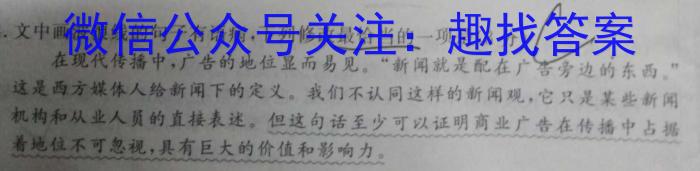 微信公众号关注：趣找答案
文中画
的一项
在现代传播中,广告的地位显而易见。“新闻就是配在广告旁边的东西。”
这是西方媒体人给新闻下的定义。我们不认同这样的新闻观,它只是某些新闻
机构和从业人员的直接表述。但这句话至少可以证明商业广告在传播中占据
着地位不可忽视,具有巨大的价值和影响力。